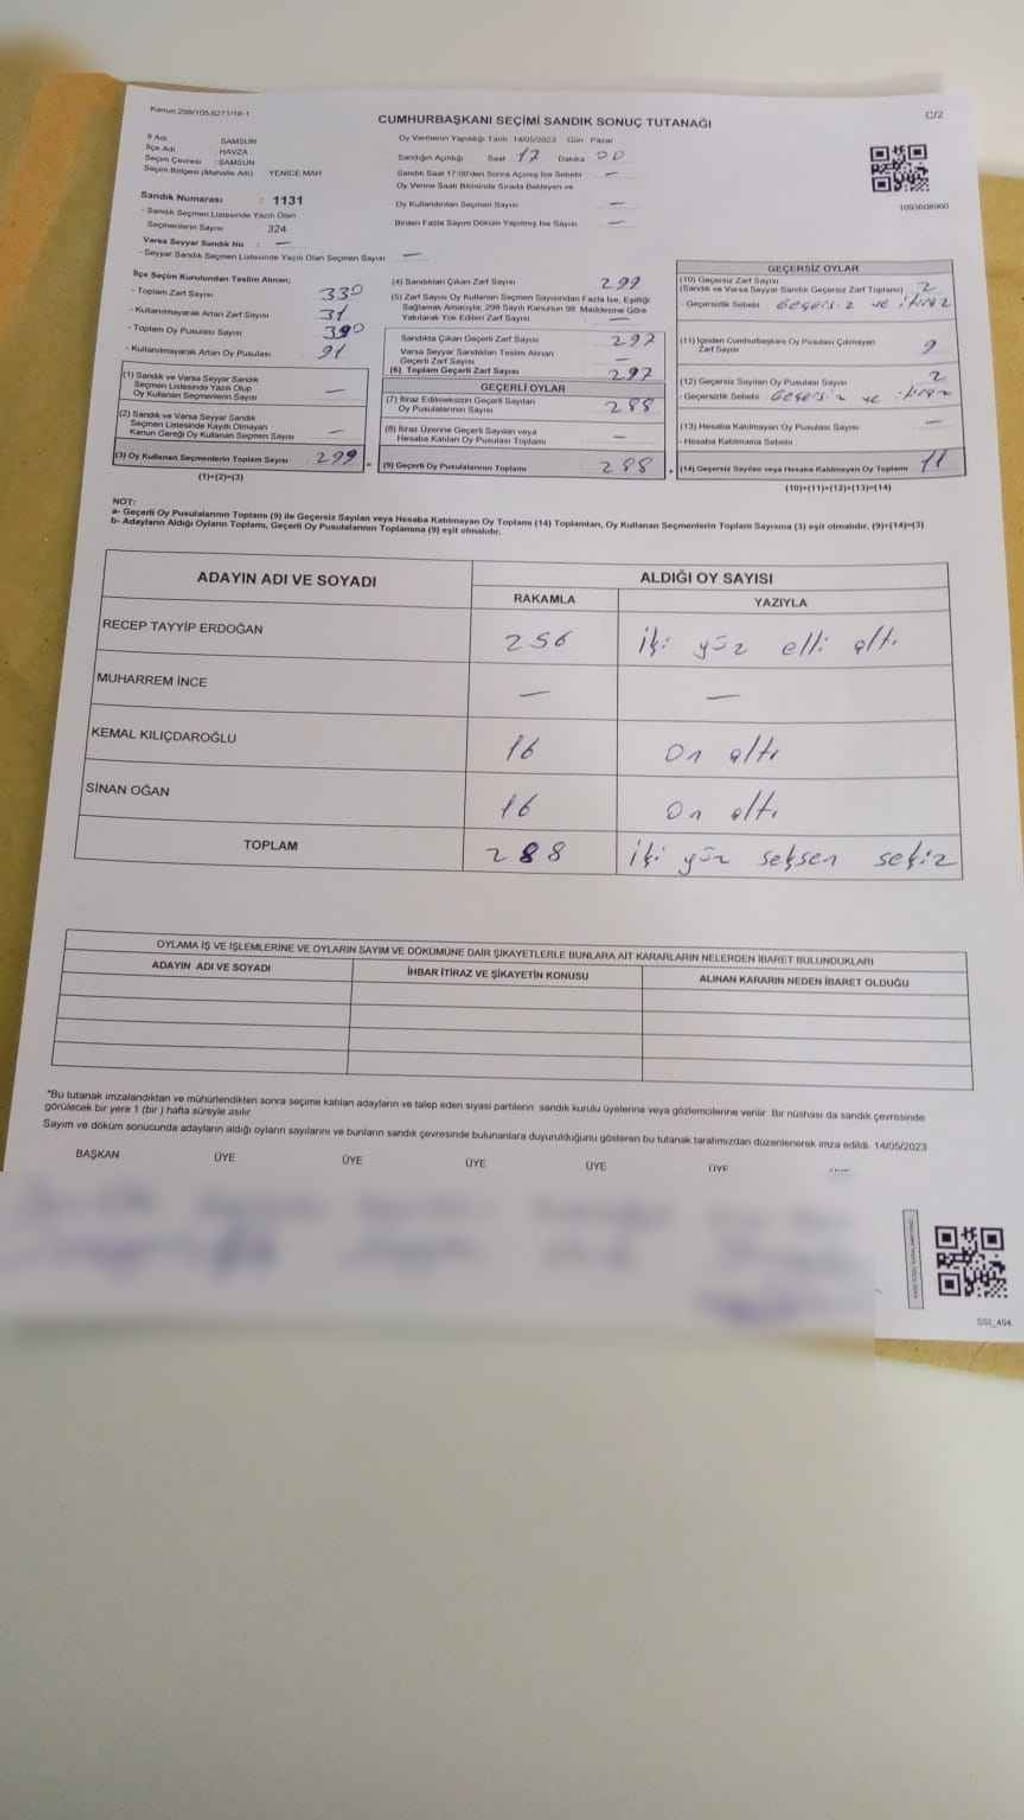 Kanun 298/105,6271/18-1
C/2
CUMHURBAŞKANI SEÇİMİ SANDIK SONUÇ TUTANAĞI
İl Adı SAMSUN
İlçe Adı HAVZA
Seçim Çevresi SAMSUN
Seçim Bölgesi (Mahalle Adı) YENİCE MAH
Sandık Numarası : 1131
- Sandık Seçmen Listesinde Yazılı Olan
Seçmenlerin Sayısı 324
Varsa Seyyar Sandık No : —
- Seyyar Sandık Seçmen Listesinde Yazılı Olan Seçmen Sayısı —
Oy Vermenin Yapıldığı Tarih 14/05/2023 Gün Pazar
Sandığın Açıldığı Saat 17 Dakika 00
Sandık Saat 17:00'den Sonra Açılmış İse Sebebi —
Oy Verme Saati Bitiminde Sırada Bekleyen ve
Oy Kullandırılan Seçmen Sayısı —
Birden Fazla Sayım Döküm Yapılmış İse Sayısı —
İlçe Seçim Kurulundan Teslim Alınan;
- Toplam Zarf Sayısı 330
- Kullanılmayarak Artan Zarf Sayısı 31
- Toplam Oy Pusulası Sayısı 390
- Kullanılmayarak Artan Oy Pusulası 91
(1) Sandık ve Varsa Seyyar Sandık
Seçmen Listesinde Yazılı Olup
Oy Kullanan Seçmenlerin Sayısı —
(2) Sandık ve Varsa Seyyar Sandık
Seçmen Listesinde Kayıtlı Olmayan
Kanun Gereği Oy Kullanan Seçmen Sayısı —
(3) Oy Kullanan Seçmenlerin Toplam Sayısı 299
(1)+(2)=(3)
(4) Sandıktan Çıkan Zarf Sayısı 299
(5) Zarf Sayısı Oy Kullanan Seçmen Sayısından Fazla İse, Eşitliği
Sağlamak Amacıyla, 298 Sayılı Kanunun 98. Maddesine Göre
Yakılarak Yok Edilen Zarf Sayısı —
Sandıkta Çıkan Geçerli Zarf Sayısı 297
Varsa Seyyar Sandıktan Teslim Alınan
Geçerli Zarf Sayısı —
(6) Toplam Geçerli Zarf Sayısı 297
GEÇERLİ OYLAR
(7) İtiraz Edilmeksizin Geçerli Sayılan
Oy Pusulalarının Sayısı 288
(8) İtiraz Üzerine Geçerli Sayılan veya
Hesaba Katılan Oy Pusulası Toplamı —
(9) Geçerli Oy Pusulalarının Toplamı 288
1093608900
GEÇERSİZ OYLAR
(10) Geçersiz Zarf Sayısı
(Sandık ve Varsa Seyyar Sandık Geçersiz Zarf Toplamı) 2
- Geçersizlik Sebebi Geçersiz ve itiraz
(11) İçinden Cumhurbaşkanı Oy Pusulası Çıkmayan
Zarf Sayısı 9
(12) Geçersiz Sayılan Oy Pusulası Sayısı 2
- Geçersizlik Sebebi Geçersiz ve itiraz
(13) Hesaba Katılmayan Oy Pusulası Sayısı —
- Hesaba Katılmama Sebebi
(14) Geçersiz Sayılan veya Hesaba Katılmayan Oy Toplamı 11
(10)+(11)+(12)+(13)=(14)
NOT:
a- Geçerli Oy Pusulalarının Toplamı (9) ile Geçersiz Sayılan veya Hesaba Katılmayan Oy Toplamı (14) Toplamları, Oy Kullanan Seçmenlerin Toplam Sayısına (3) eşit olmalıdır. (9)+(14)=(3)
b- Adayların Aldığı Oyların Toplamı, Geçerli Oy Pusulalarının Toplamına (9) eşit olmalıdır.
ADAYIN ADI VE SOYADI
ALDIĞI OY SAYISI
RAKAMLA YAZIYLA
RECEP TAYYİP ERDOĞAN 256 iki yüz elli altı
MUHARREM İNCE — —
KEMAL KILIÇDAROĞLU 16 on altı
SİNAN OĞAN 16 on altı
TOPLAM 288 iki yüz seksen sekiz
OYLAMA İŞ VE İŞLEMLERİNE VE OYLARIN SAYIM VE DÖKÜMÜNE DAİR ŞİKAYETLERLE BUNLARA AİT KARARLARIN NELERDEN İBARET BULUNDUKLARI
ADAYIN ADI VE SOYADI İHBAR İTİRAZ VE ŞİKAYETİN KONUSU ALINAN KARARIN NEDEN İBARET OLDUĞU
*Bu tutanak imzalandıktan ve mühürlendikten sonra seçime katılan adayların ve talep eden siyasi partilerin sandık kurulu üyelerine veya gözlemcilerine verilir. Bir nüshası da sandık çevresinde
görülecek bir yere 1 (bir) hafta süreyle asılır.
Sayım ve döküm sonucunda adayların aldığı oyların sayılarını ve bunların sandık çevresinde bulunanlara duyurulduğunu gösteren bu tutanak tarafımızdan düzenlenerek imza edildi. 14/05/2023
BAŞKAN ÜYE ÜYE ÜYE ÜYE ÜYE